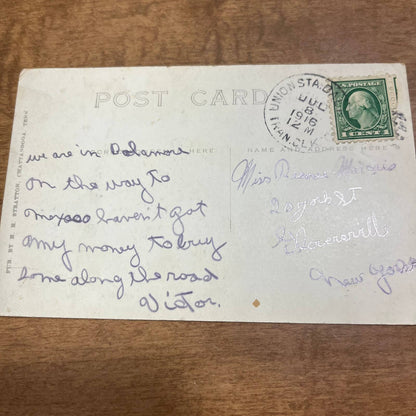 POST CARD
UNION STA.
TRAN. CLK.
JUL
8
1916
12 M
U.S. POSTAGE
1 CENT 1
HERE
NAME AND ADDRESS HERE
PUB. BY H. H. STRATTON, CHATTANOOGA, TENN.
we are in
on the way to
mexaso haven't got
amy money to buy
some along the road
Victor.
Miss
St
New York